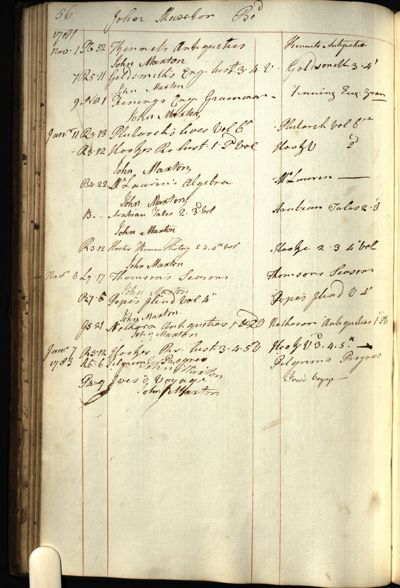 56 John Maxton Bd
1781
Nov. 1 P6.52 Kennets Antiquities Kennets Antiquities
John Maxton
7 R25.11 Goldsmiths Eng. hist 3.4 V. Goldsmith 3.4
John Maxton
9 Fenings Eng Grammar Fenning Eng. Gram
John Maxton
Jany 11 R3.13 Plutarch's lives Vol 6 Plutarch Vol 6
R3.12 Hooks Ro hist 1.2d Vol Hook V 2d
John Maxton
B4.22 McLaurin's Algebra McLauren
John Maxton
B. Arabian Tales 2.3d Vol Arabian Tales 2.3
John Maxton
R3.12 Hooks Roman History 2.3.4th Vol Hooke 2.3.4 Vol
John Maxton
Novr 6 L9.17 Thomson's Seasons Thomsons Seasons
John Maxton
R7.6 Popes Iliad Vol 4 Popes Iliad V 4
John Maxton
G5.21 Antiquities 1 & 2D Antiquities 1 2D
John Maxton
Jany 7 R3.12 Hookes Ro. hist. 3.4.5th Hook V 3.4.5
1783 R5.6 Pilgrims Progress Pilgrims Progres
John Maxton
Ives's Voyage Ives's Voyage
John Maxton